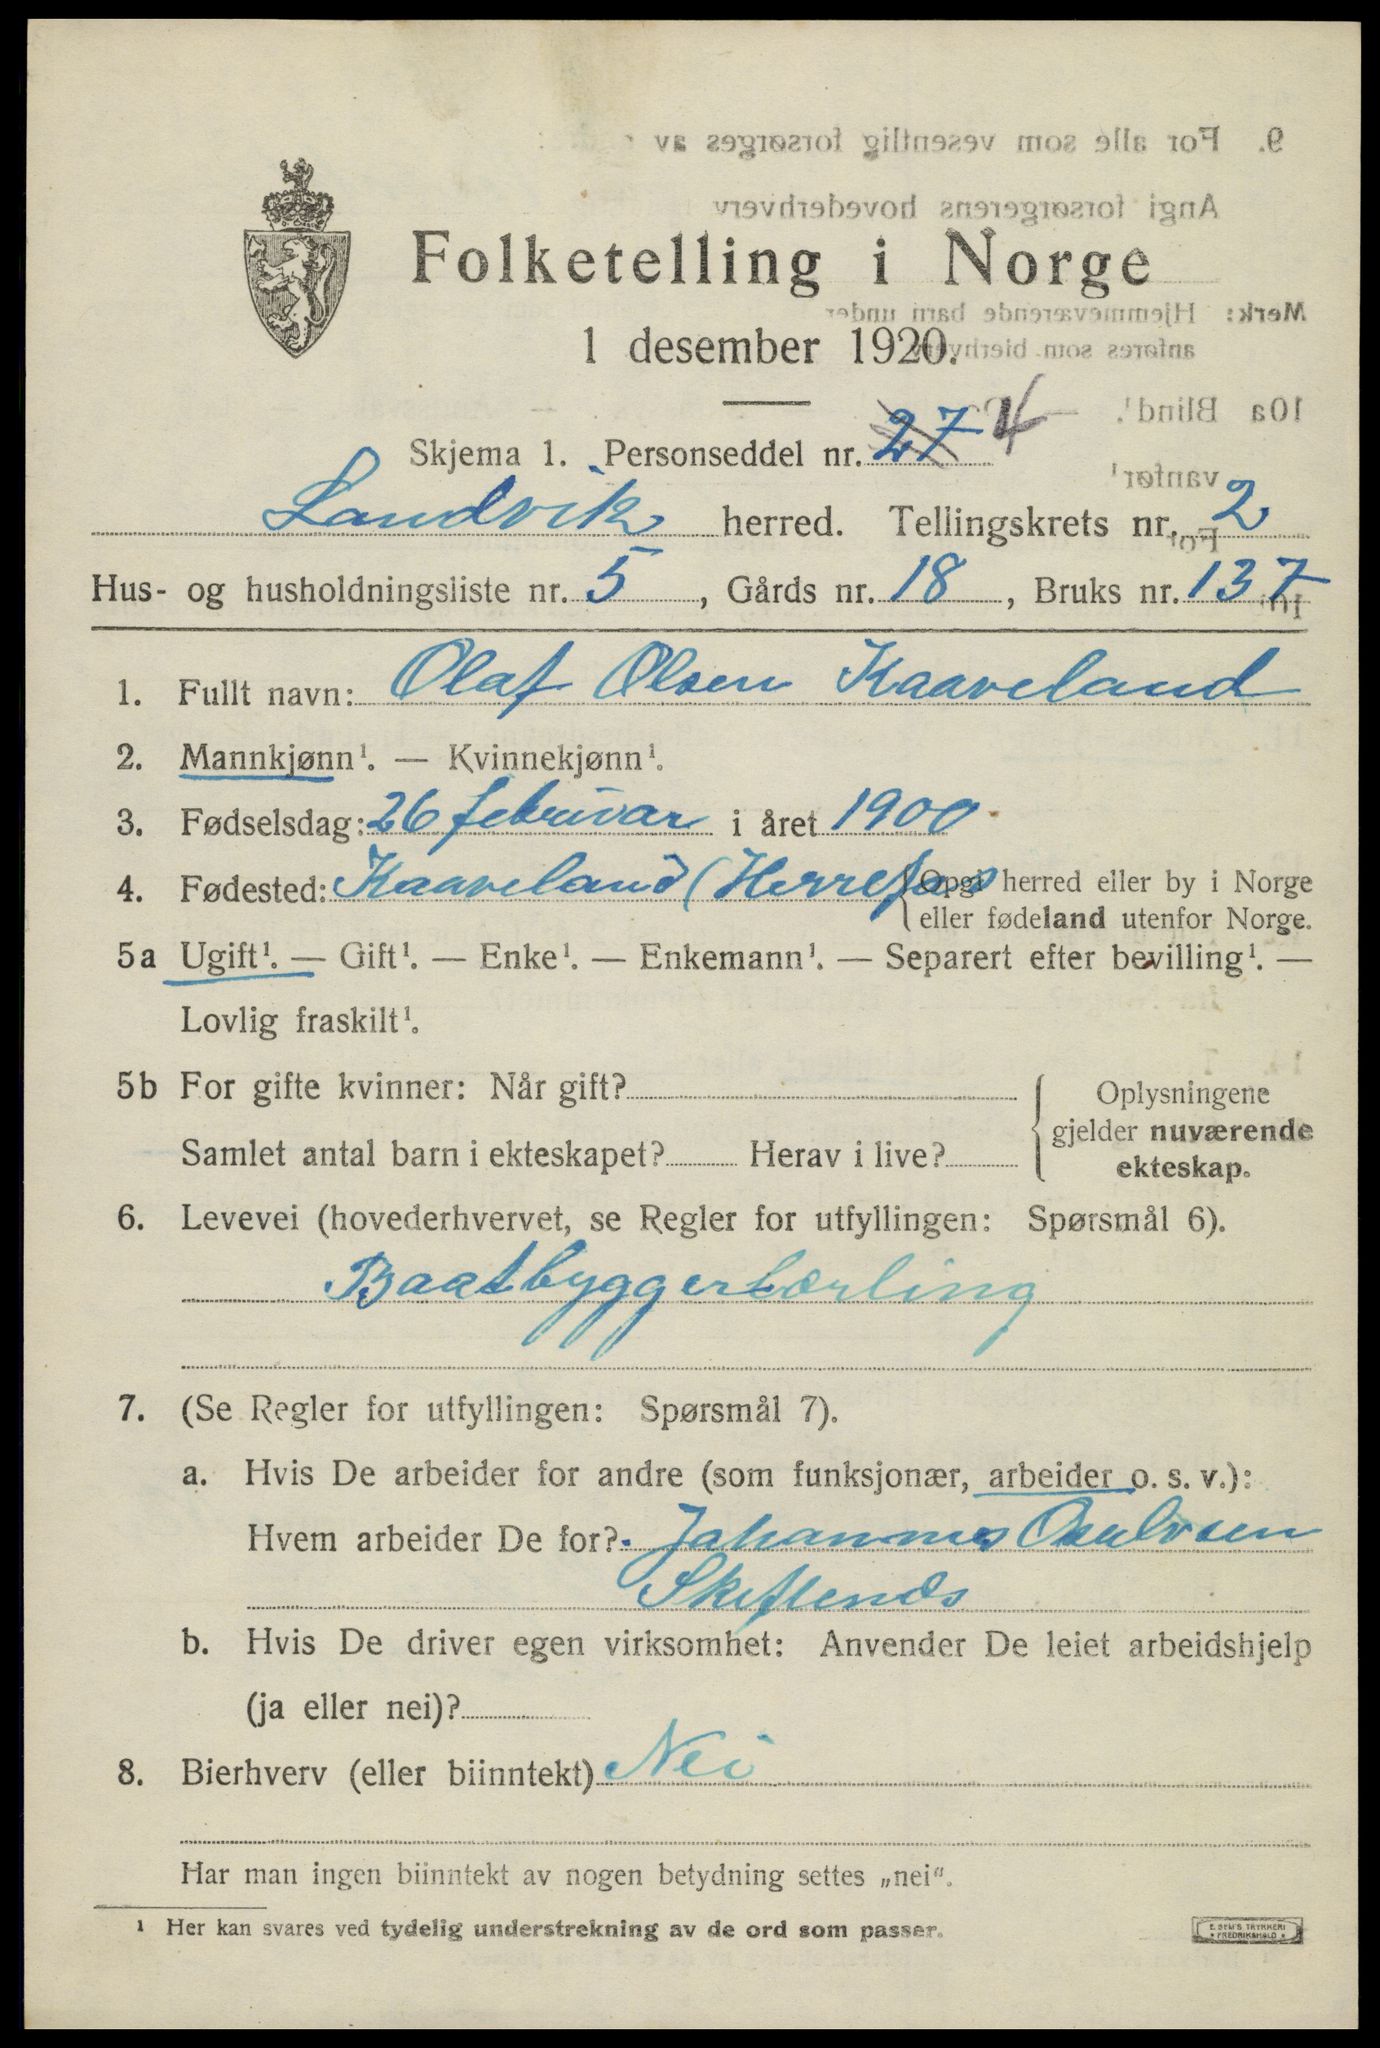 Folketelling i Norge
1 desember 1920.
Skjema 1. Personseddel nr. 27 4
Landvik herred. Tellingskrets nr. 2
Hus- og husholdningsliste nr. 5, Gårds nr. 18, Bruks nr. 137
1. Fullt navn: Olaf Olsen Kaaveland
2. Mannkjønn¹. — Kvinnekjønn¹.
3. Fødselsdag: 26 februar i året 1900
4. Fødested: Kaaveland (Herrefos { Opgi herred eller by i Norge
eller fødeland utenfor Norge.
5a Ugift¹. — Gift¹. — Enke¹. — Enkemann¹. — Separert efter bevilling¹. —
Lovlig fraskilt¹.
5b For gifte kvinner: Når gift? { Oplysningene
gjelder nuværende
Samlet antal barn i ekteskapet? Herav i live? ekteskap.
6. Levevei (hovederhvervet, se Regler for utfyllingen: Spørsmål 6).
Baatbyggerlærling
7. (Se Regler for utfyllingen: Spørsmål 7).
a. Hvis De arbeider for andre (som funksjonær, arbeider o. s. v.):
Hvem arbeider De for? Johannes Osulvsen
b. Hvis De driver egen virksomhet: Anvender De leiet arbeidshjelp
(ja eller nei)?
8. Bierhverv (eller biinntekt) Nei
Har man ingen biinntekt av nogen betydning settes „nei“.
¹ Her kan svares ved tydelig understrekning av de ord som passer.
E. SEM'S TRYKKERI
FREDRIKSHALD